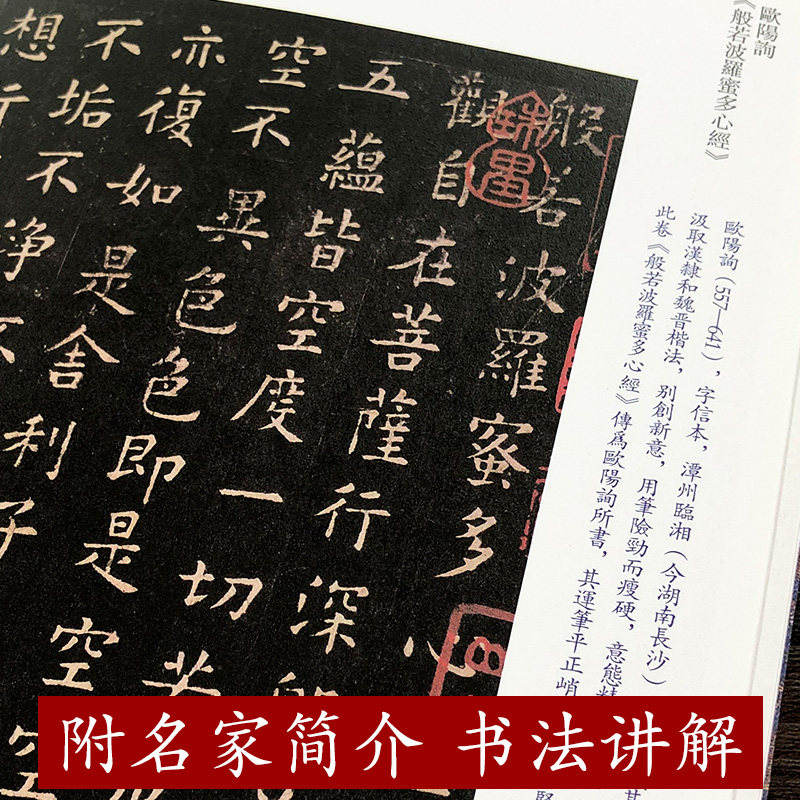 歐陽詢
《般若波羅蜜多心經》
歐陽詢（557—641），字信本，潭州臨湘（今湖南長沙）
汲取漢隸和魏晉楷法，別創新意，用筆險勁而瘦硬，意態精
此卷《般若波羅蜜多心經》傳爲歐陽詢所書，其運筆平正峭
般若波羅蜜多心
觀自在菩薩行深
五蘊皆空度一切苦
空不異色色即是空空
亦復如是舍利子
不垢不淨不
想行
附名家简介 书法讲解